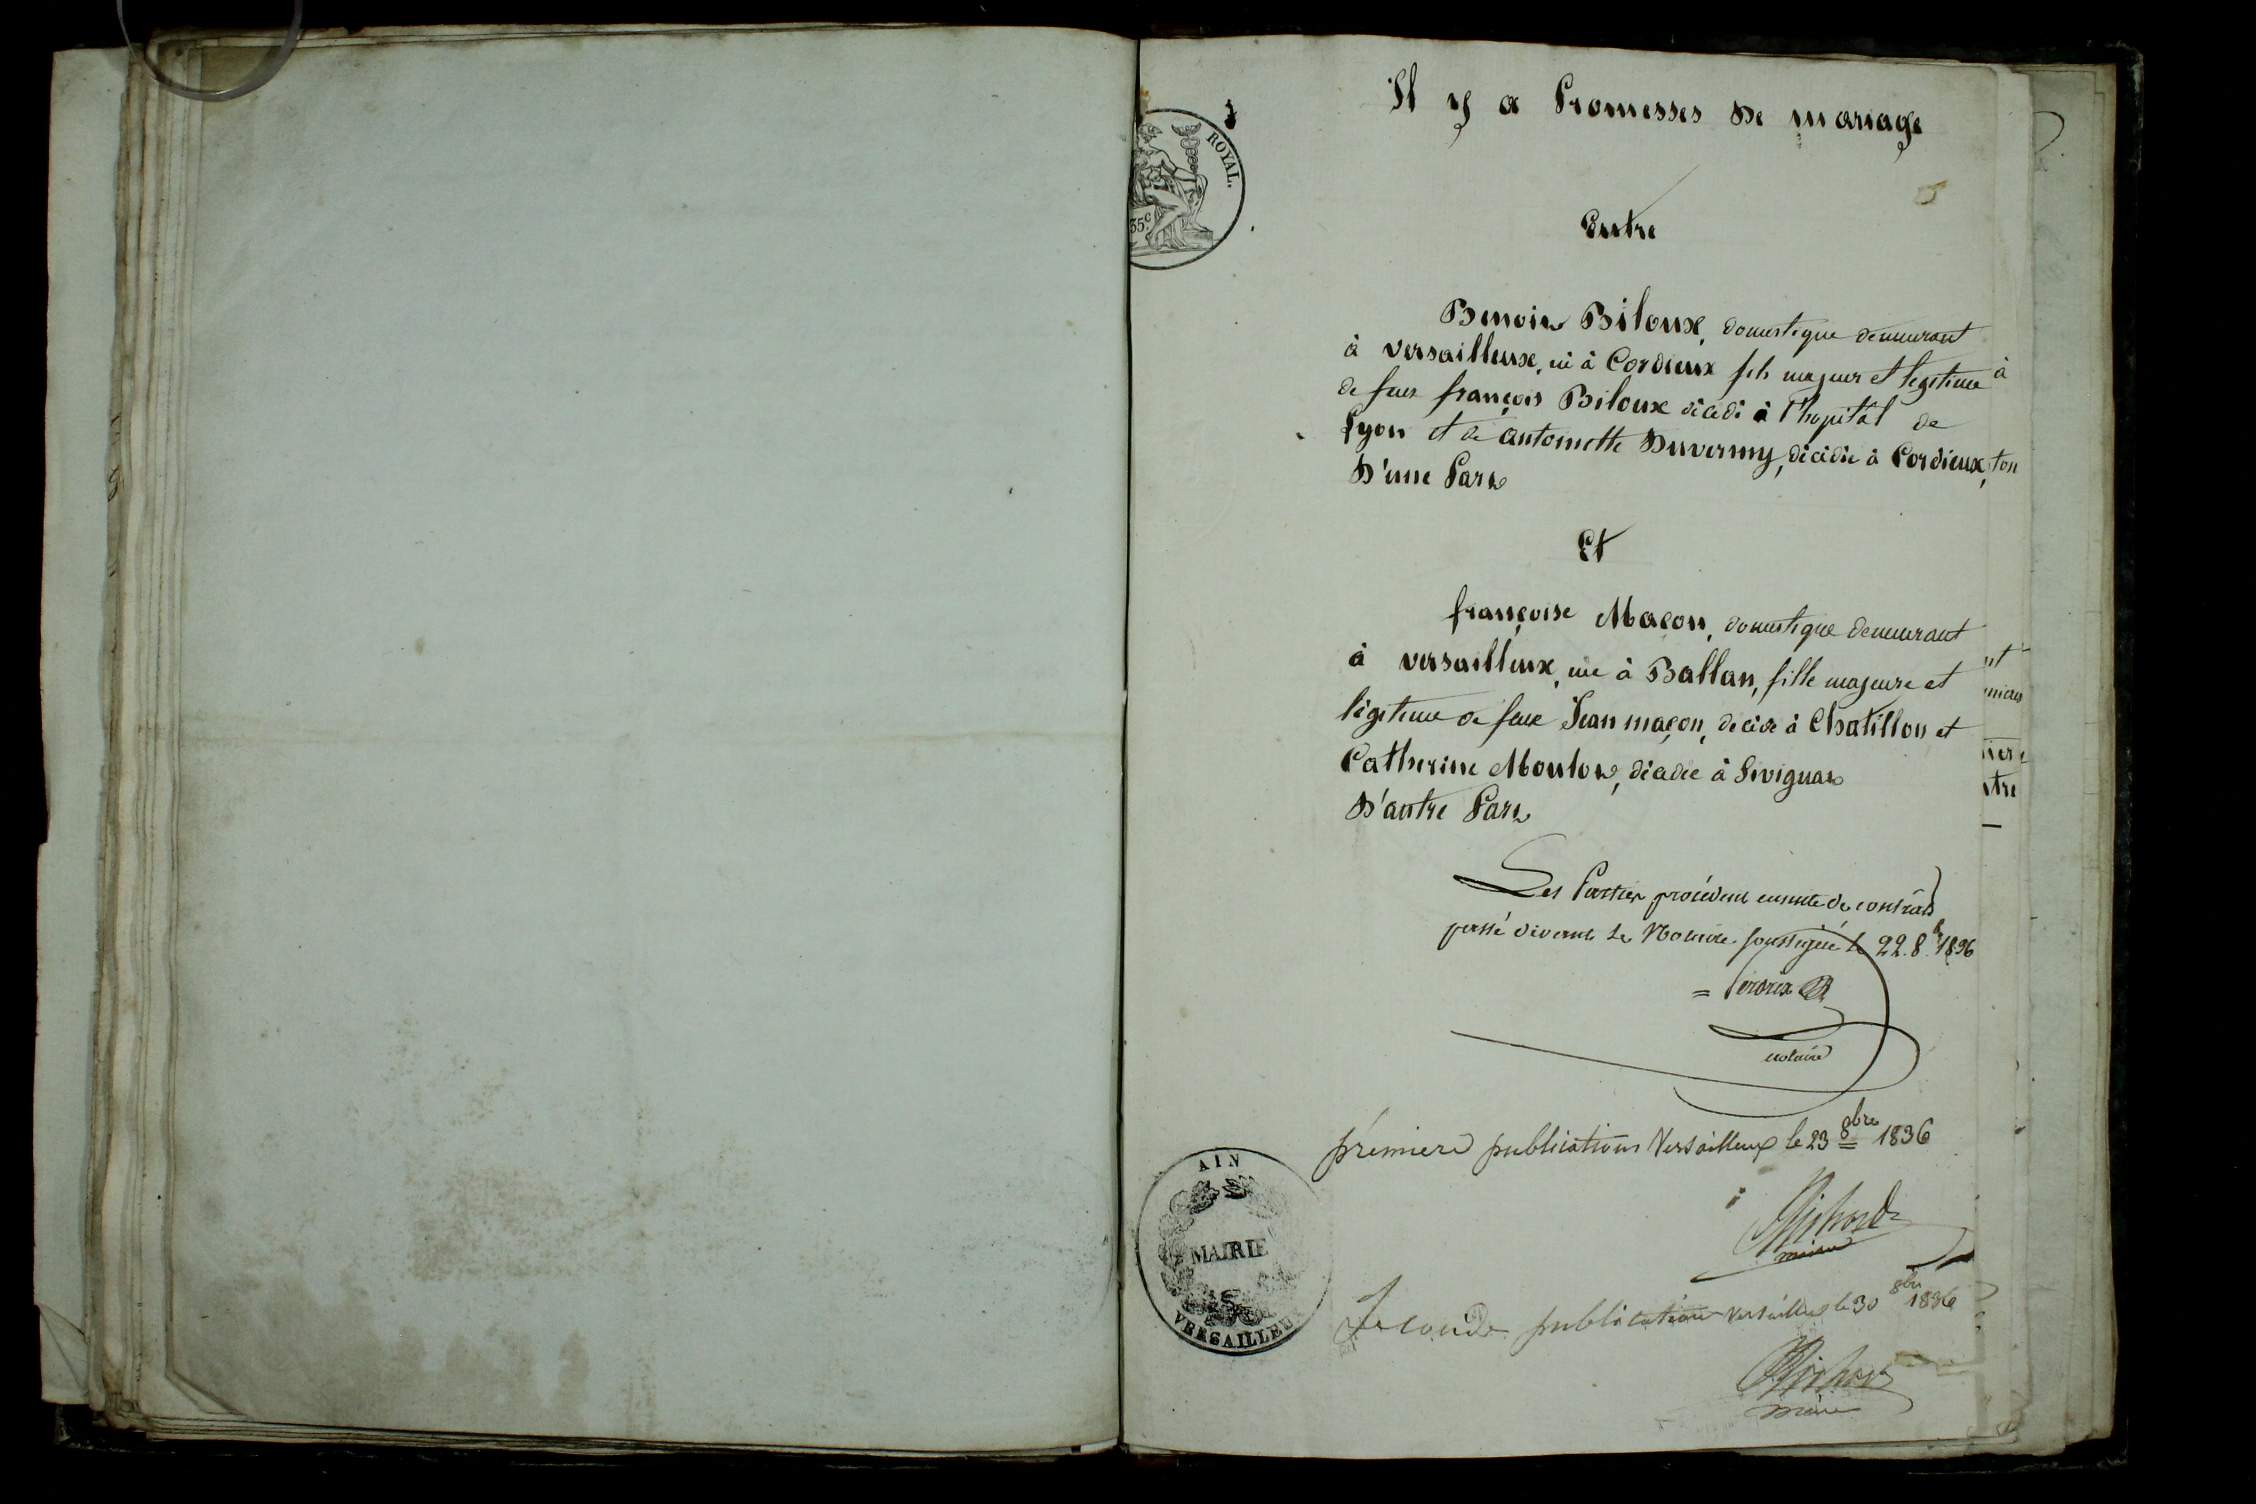 Il y a Promesses De mariage
ROYAL.
35c
Entre
Benoit Biloux, domestique demeurant
à versailleux, né à Cordieux fils majeur et legitime
à
de feux françois Biloux décédé à l'hopital de
Lyon et de antoinette Duverny, décédée à Cordieux,
ton
D'une Part
Et
françoise Maçon, domestique demeurant
à versailleux, née à Ballan, fille majeure et
légitime de feux Jean maçon, décédé à Chatillon et
Catherine Moulon, décédée à Sivignat
D'autre Part
tre
Les Parties procèdent ensuite de contrat
passé devant le Notaire soussigné le 22. 8bre 1836
notaire
premiere publications Versailleux le 23 8bre 1836
maire
AIN
MAIRIE
VERSAILLEU
Seconde publication Versailleux le 30 8bre 1836
maire